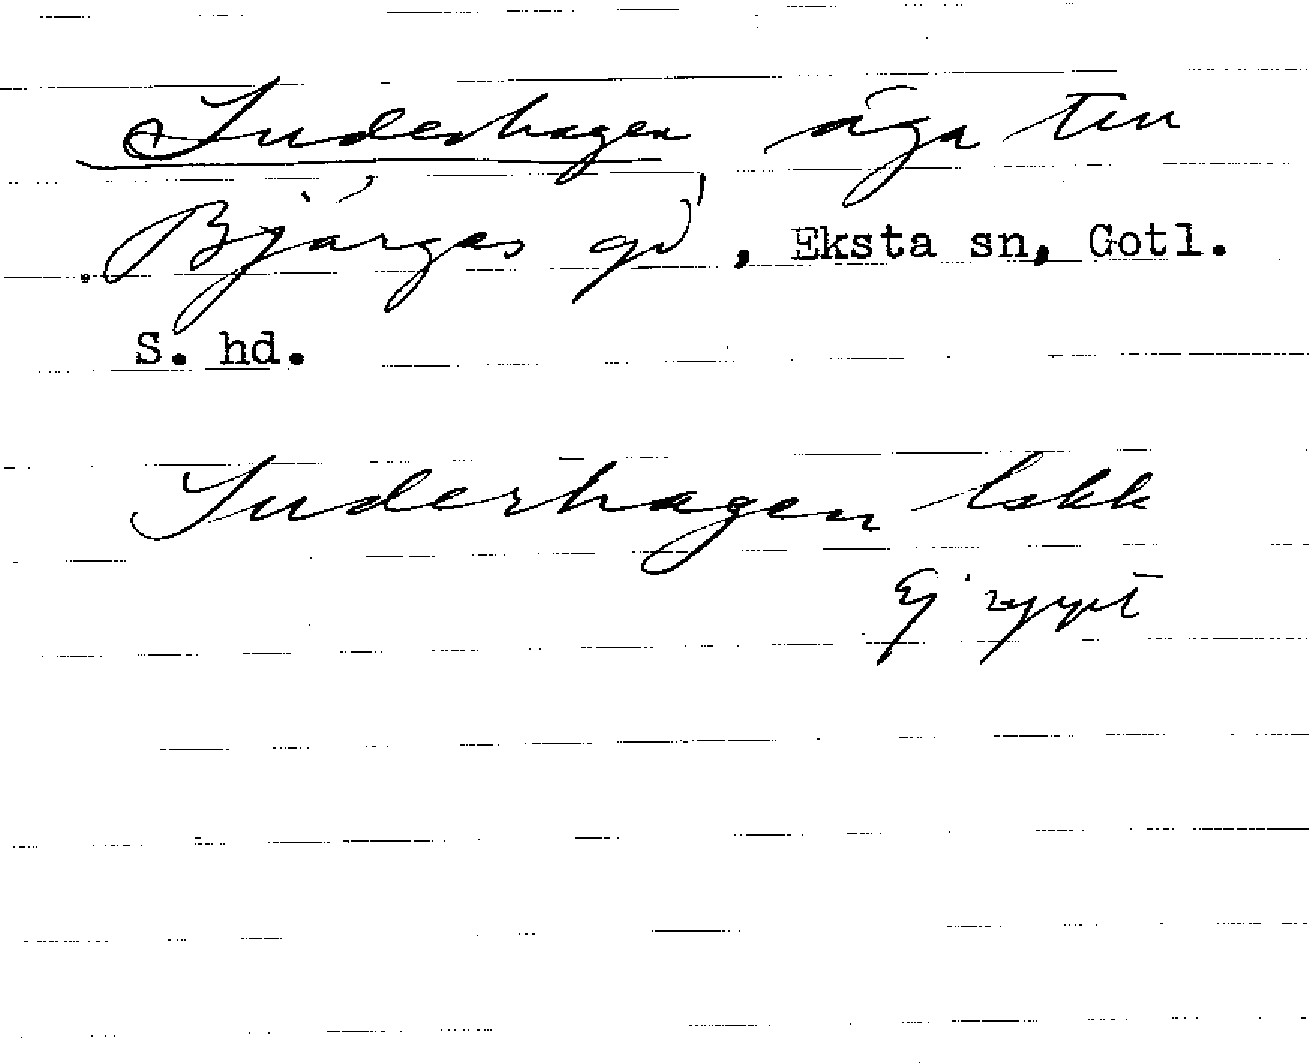 Suderhagen äga till
Bjärges gd, Eksta sn, Gotl.
S. hd.
Suderhagen lskk
Ej uppt